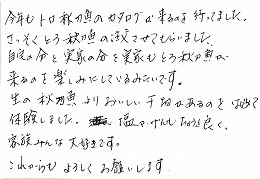 今年もトロ秋刀魚のカタログが来るのを待ってました。
さっそくとろ秋刀魚の注文させてもらいました。
自宅の分と実家の分と実家もとろ秋刀魚が
来るのを楽しみにしているみたいです。
生の秋刀魚よりおいしい干物があるのを初めて
体験しました。塩かげんもちょうど良く、
家族みんな大好きです。
これからもよろしくお願いします。